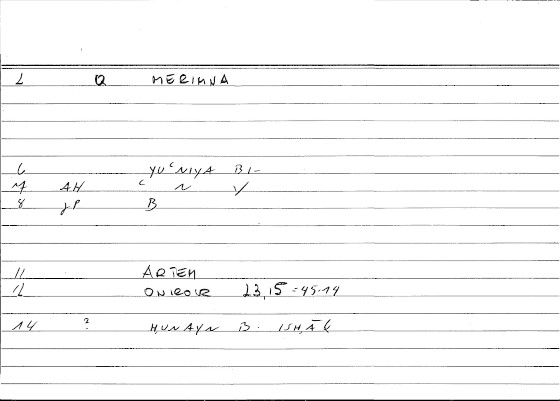 2 Q MERIMNA
6 YUʿNIYA BI-
7 AH ʿ N Y
8 JP B
11 ARTEM
12 ONIROCR 23,15 = 45.19
14 ? ḤUNAYN B. ISḤĀḲ